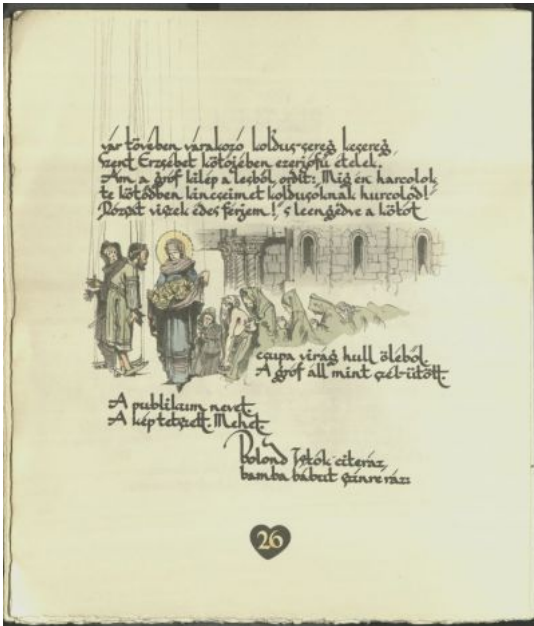 vár tövében várakozó koldus-sereg kesereg,
Szent Erzsébet kötőjében ezerjófű ételek.
Ám a gróf kilép a lesből, ordít: Míg én harcolok
te kötődben kincseimet koldusoknak hurcolod!
Rózsát viszek édes férjem!, s leengedve a kötőt
csupa virág hull öléből.
A gróf áll mint szél-ütött.
A publikum nevet.
A kép tetszett. Mehet.
Bolond Istók citeráz,
bamba bábut színre ráz:
26